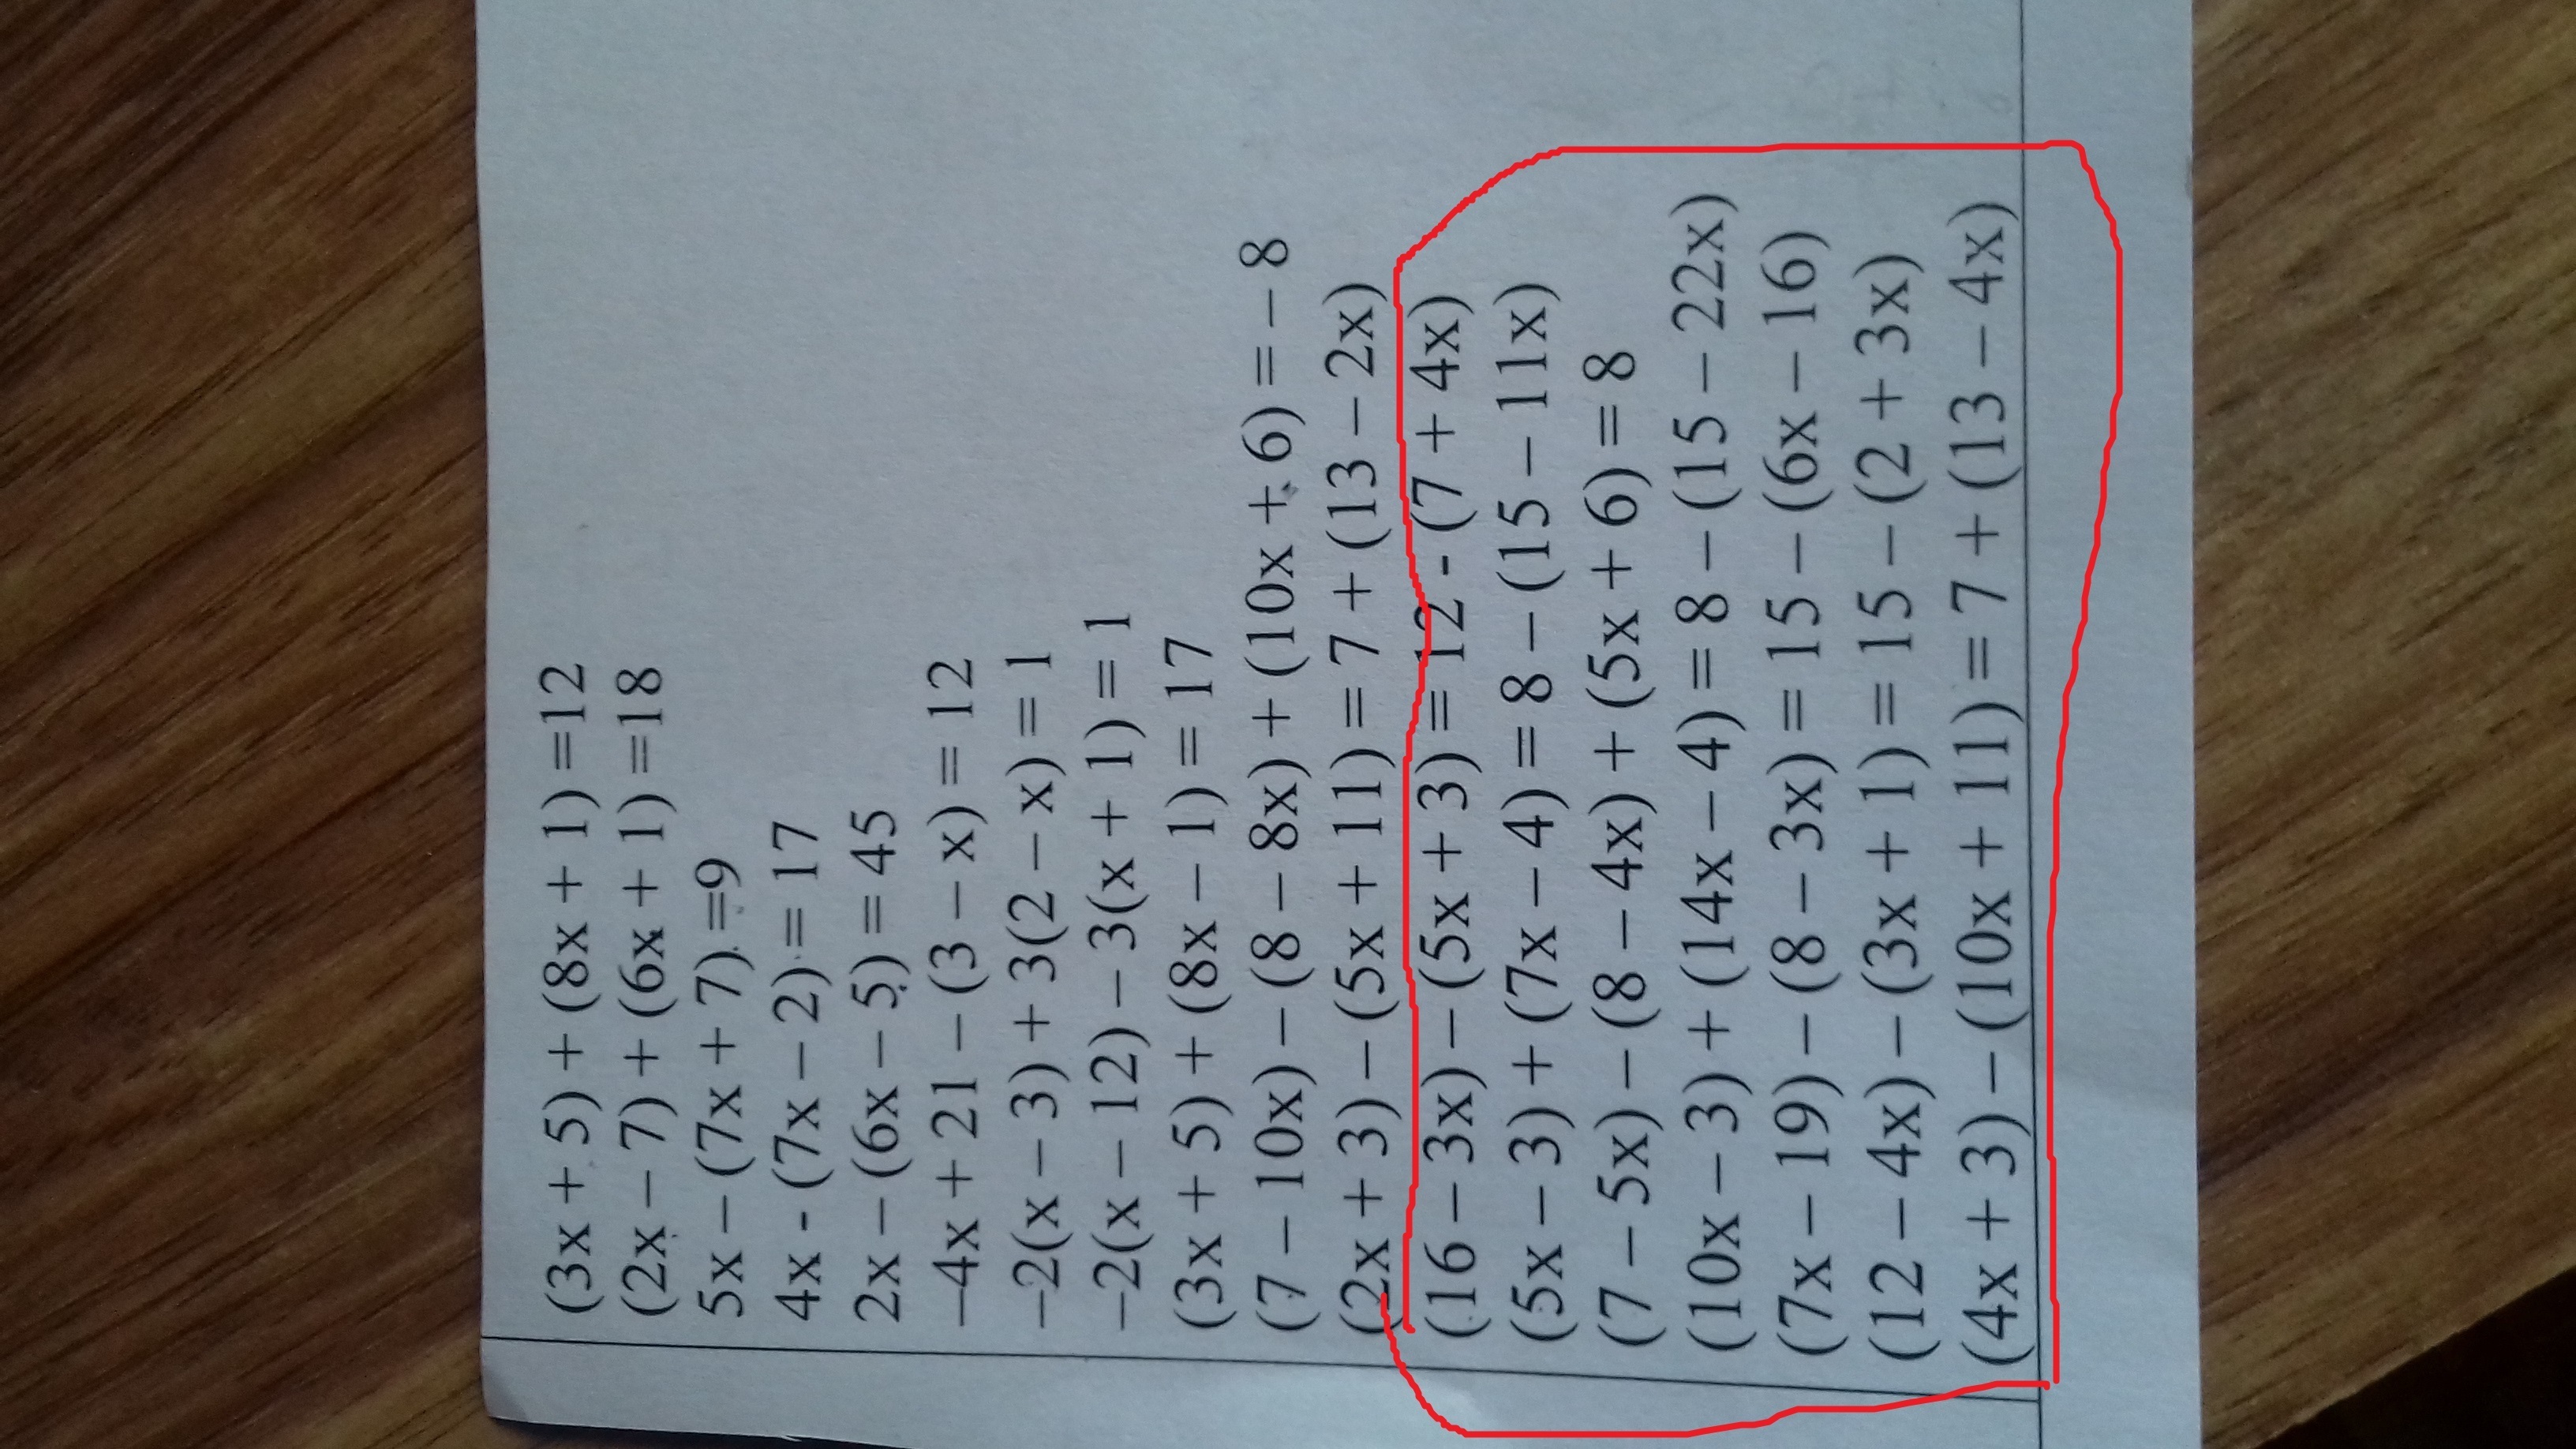 (3x + 5) + (8x + 1) =12
(2x – 7) + (6x + 1) =18
5x – (7x + 7) =9
4x - (7x – 2) = 17
2x – (6x – 5) = 45
–4x + 21 – (3 – x) = 12
–2(x – 3) + 3(2 – x) = 1
–2(x – 12) – 3(x + 1) = 1
(3x + 5) + (8x – 1) = 17
(7 – 10x) – (8 – 8x) + (10x + 6) = – 8
(2x + 3) – (5x + 11) = 7 + (13 – 2x)
(16 – 3x) – (5x + 3) = 12 - (7 + 4x)
(5x – 3) + (7x – 4) = 8 – (15 – 11x)
(7 – 5x) – (8 – 4x) + (5x + 6) = 8
(10x – 3) + (14x – 4) = 8 – (15 – 22x)
(7x – 19) – (8 – 3x) = 15 – (6x – 16)
(12 – 4x) – (3x + 1) = 15 – (2 + 3x)
(4x + 3) – (10x + 11) = 7 + (13 – 4x)